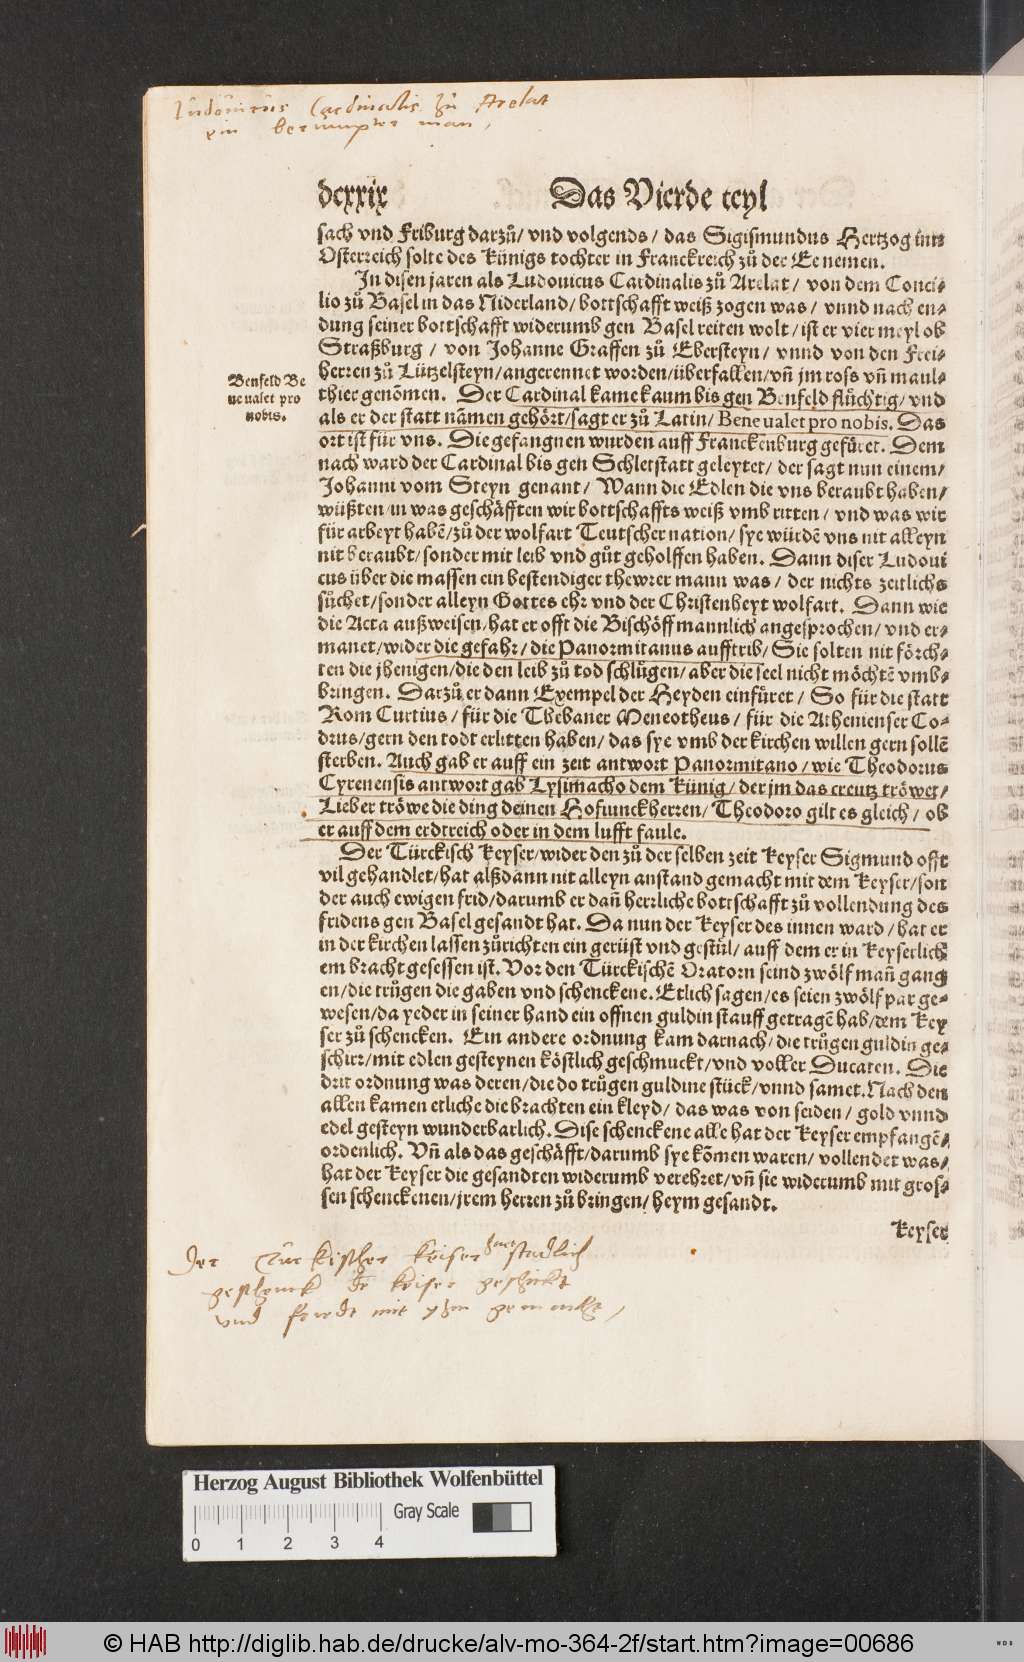 Ludouicus Cardinalis zu Arelat
ein berumpter man,
dcxxix
Das Vierde teyl
sach vnd Friburg darzů/ vnd volgends/ das Sigismundus Hertzog inn
Osterreich solte des Künigs tochter in Franckreich zů der Ee nemen.
In disen jaren als Ludouicus Cardinalis zů Arelat/ von dem Conci⸗
lio zů Basel in das Niderland/ bottschafft weiß zogen was/ vnnd nach en⸗
dung seiner bottschafft widerumb gen Basel reiten wolt/ ist er vier meyl ob
Straßburg/ von Johanne Graffen zů Ebersteyn/ vnnd von den Frei⸗
herren zů Lützelsteyn/ angerennet worden/ überfallen/ vñ jm ross vñ maul⸗
thier genõmen. Der Cardinal kame kaum bis gen Benfeld flüchtig/ vnd
als er der statt nãmen gehört/ sagt er zů Latin/ Bene ualet pro nobis. Das
ort ist für vns. Die gefangnen wurden auff Franckenburg gefüret. Dem
nach ward der Cardinal bis gen Schletstatt geleytet/ der sagt nun einem/
Johanni vom Steyn genant/ Wann die Edlen die vns beraubt haben/
wüßten in was geschäfften wir bottschaffts weiß vmb ritten/ vnd was wir
für arbeyt habẽ/ zů der wolfart Teutscher nation/ sye würdẽ vns nit alleyn
nit beraubt/ sonder mit leib vnd gůt geholffen haben. Dann diser Ludoui
cus über die massen ein bestendiger thewrer mann was/ der nichts zeitlichs
sůchet/ sonder alleyn Gottes ehr vnd der Christenheyt wolfart. Dann wie
die Acta außweisen/ hat er offt die Bischöff mannlich angesprochen/ vnd er⸗
manet/ wider die gefahr/ die Panormitanus aufftrib/ Sie solten nit förch⸗
ten die jhenigen/ die den leib zů tod schlügen/ aber die seel nicht möchtẽ vmb⸗
bringen. Darzů er dann Exempel der Heyden einfüret/ So für die statt
Rom Curtius/ für die Thebaner Meneotheus/ für die Athenienser Co⸗
drus/ gern den todt erlitten haben/ das sye vmb der kirchen willen gern sollẽ
sterben. Auch gab er auff ein zeit antwort Panormitano/ wie Theodorus
Cyrenensis antwort gab Lysimacho dem Künig/ der jm das creutz tröwet/
Lieber tröwe die ding deinen Hofiunckherren/ Theodoro gilt es gleich/ ob
er auff dem erdtreich oder in dem lufft faule.
Benfeld Be
ne ualet pro
nobis.
Der Türckisch Keyser/ wider den zů der selben zeit Keyser Sigmund offt
vil gehandlet/ hat alßdann nit alleyn anstand gemacht mit dem Keyser/ son
der auch ewigen frid/ darumb er dañ herrliche bottschafft zů vollendung des
fridens gen Basel gesandt hat. Da nun der Keyser des innen ward/ hat er
in der kirchen lassen zůrichten ein gerüst vnd gestůl/ auff dem er in Keyserlich
em bracht gesessen ist. Vor den Türckischẽ Oratorn seind zwölf mañ gang
en/ die trůgen die gaben vnd schenckene. Etlich sagen/ es seien zwölf par ge⸗
wesen/ da yeder in seiner hand ein offnen guldin stauff getragẽ hab/ dem Key
ser zů schencken. Ein andere ordnung kam darnach/ die trůgen guldin ge⸗
schirr/ mit edlen gesteynen köstlich geschmuckt/ vnd voller Ducaten. Die
drit ordnung was deren/ die do trůgen guldine stück/ vnnd samet. Nach den
allen kamen etliche die brachten ein kleyd/ das was von seiden/ gold vnnd
edel gesteyn wunderbarlich. Dise schenckene alle hat der Keyser empfangẽ/
ordenlich. Vñ als das geschäfft/ darumb sye kõmen waren/ vollendet was/
hat der Keyser die gesandten widerumb verehret/ vñ sie widerumb mit gros⸗
sen schenckenen/ jrem herren zů bringen/ heym gesandt.
Keyser
Der Türkischer keiser hatt stadlich
geschenck dē keiser geschickt
vnd friedt mit yhm gemacht,
Herzog August Bibliothek Wolfenbüttel
Gray Scale
0 1 2 3 4
© HAB http://diglib.hab.de/drucke/alv-mo-364-2f/start.htm?image=00686